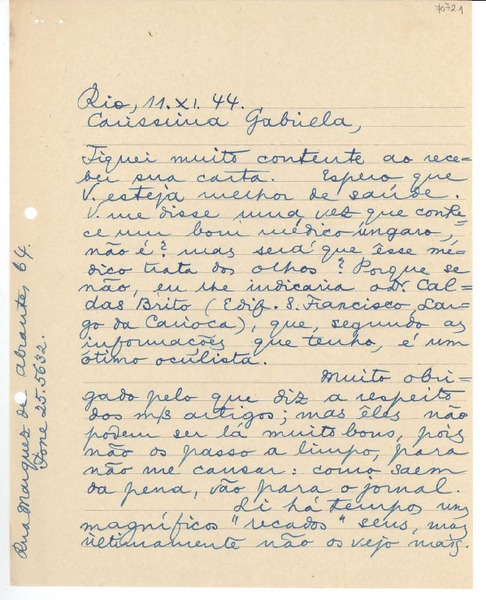 7072.1
Rio, 11. XI. 44.
Caríssima Gabriela,
Fiquei muito contente ao rece-
ber sua carta. Espero que
V. esteja melhor de saúde.
V. me disse uma vez que conhe-
ce um bom médico úngaro,
não é? mas será que êsse mé-
dico trata dos olhos? Porque se
não, eu lhe indicaria o Dr. Cal-
das Brito (Edif. S. Francisco, Lar-
go da Carioca), que, segundo as
informações que tenho, é um
ótimo oculista.
Muito obri-
gado pelo que diz a respeito
dos m/s artigos; mas êles não
podem ser lá muito bons, pois
não os passo a limpo, para
não me cansar: como saem
da pena, vão para o jornal.
Li há tempos uns
magníficos "recados" seus, mas
ùltimamente não os vejo mais.
Rua Marquez de Abrantes, 64.
Fone 25.5632.